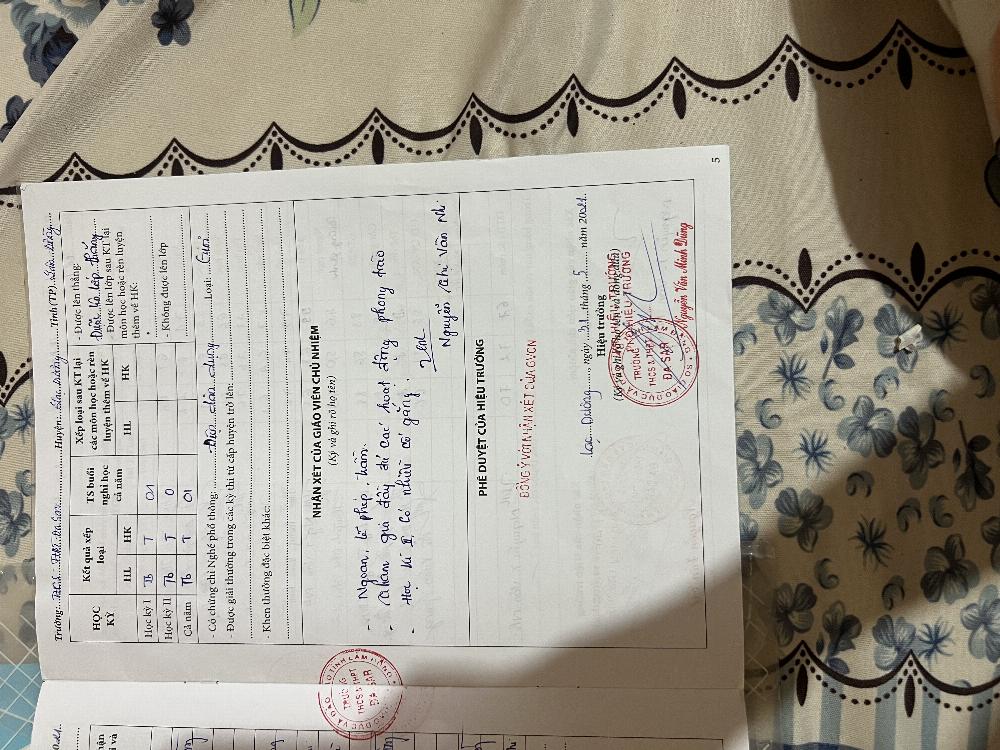 Trường: THCS & THPT Đa Sar Huyện: Lạc Dương Tỉnh (TP) Lâm Đồng
HỌC KỲ
Kết quả xếp loại
TS buổi nghỉ học cả năm
Xếp loại sau KT lại các môn học hoặc rèn luyện thêm về HK
HL HK HL HK
- Được lên thẳng:
Được lên lớp thẳng
- Được lên lớp sau KT lại
môn học hoặc rèn luyện
thêm về HK:
- Không được lên lớp
Học kỳ I Tb T 01
Học kỳ II Tb T 0
Cả năm Tb T 01
- Có chứng chỉ Nghề phổ thông: Loại: Giỏi
- Được giải thưởng trong các kỳ thi từ cấp huyện trở lên:
- Khen thưởng đặc biệt khác:
NHẬN XÉT CỦA GIÁO VIÊN CHỦ NHIỆM
(Ký và ghi rõ họ tên)
- Ngoan, lễ phép
- Tham gia đầy đủ các hoạt động phong trào
- Học kì II có nhiều cố gắng.
Nguyễn Thị Vân Nhi
PHÊ DUYỆT CỦA HIỆU TRƯỞNG
ĐỒNG Ý VỚI NHẬN XÉT CỦA GVCN
Lạc Dương, ngày 21 tháng 5 năm 2021
Hiệu trưởng
PHÓ HIỆU TRƯỞNG
TRƯỜNG
THCS & THPT
ĐA SAR
Nguyễn Văn Minh Dũng
5
TRƯỜNG
THCS & THPT
ĐA SAR